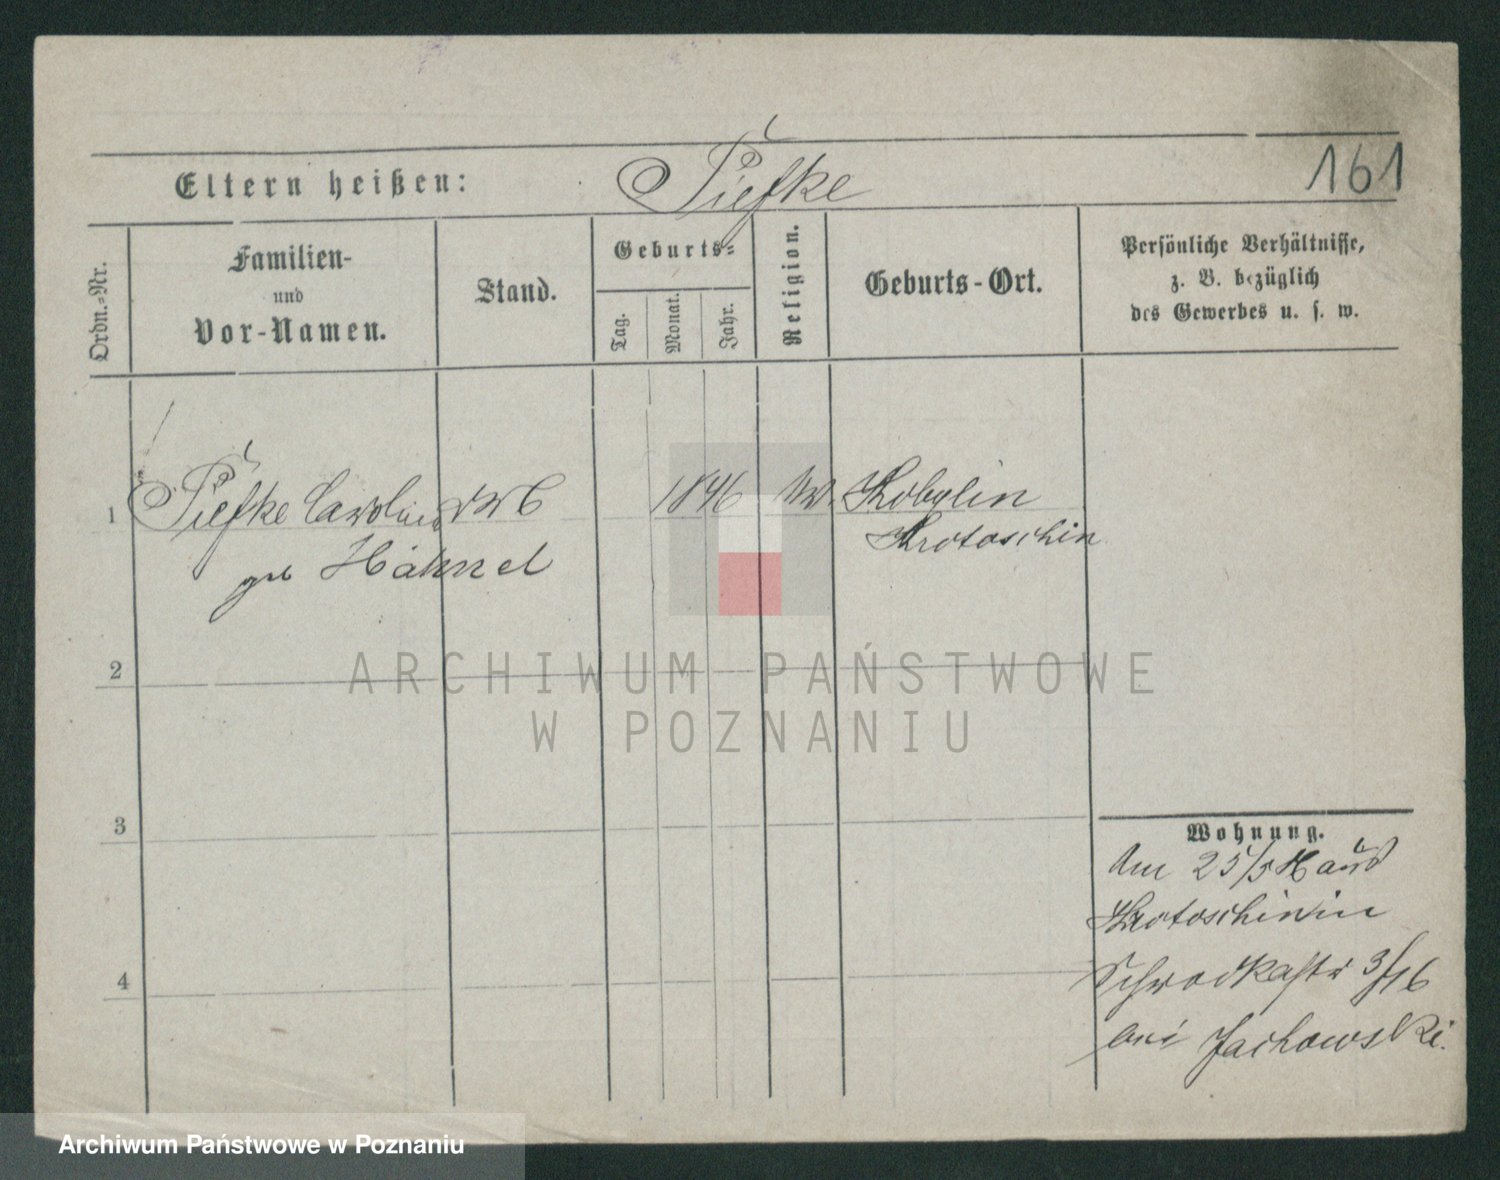 161
Eltern heißen: Piefke
Ordn.=Nr.
Familien-
und
Vor-Namen.
Stand.
Geburts=
Tag.
Monat.
Jahr.
Religion.
Geburts-Ort.
Persönliche Verhältnisse,
z. B. bezüglich
des Gewerbes u. s. w.
1 Piefke Caroline 1846 Kobylin
Krotoschin
geb Hähnel
2
ARCHIWUM PAŃSTWOWE
W POZNANIU
3
Wohnung.
Am 25/5 aus
Krotoschin in
Schrodkastr 3/16
bei Jachowski.
4
Archiwum Państwowe w Poznaniu